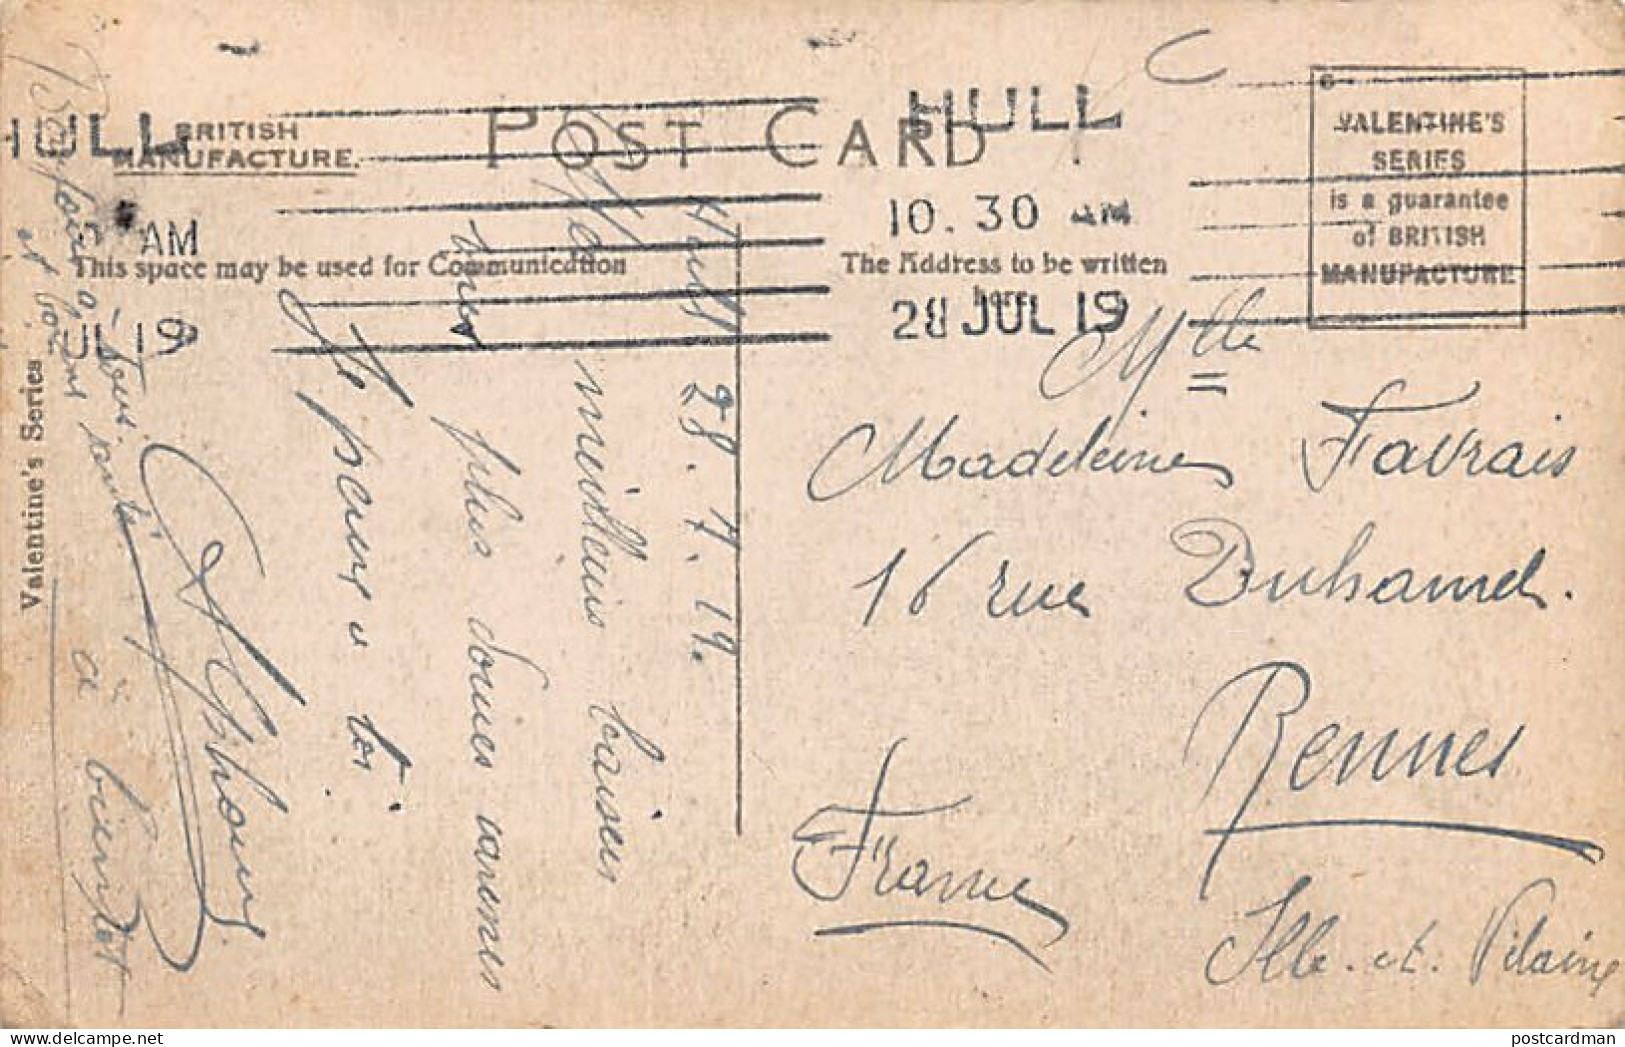 HULL
HULL
BRITISH
MANUFACTURE.
POST CARD
VALENTINE'S
SERIES
is a guarantee
of BRITISH
MANUFACTURE
10.30 AM
AM
This space may be used for Communication
The Address to be written
here
28 JUL 19
UL 19
Valentine's Series
Hull 28.7.19.
Mes meilleurs baisers
plus doux
Je pense à toi.
Alphonse
Bonjour à tous.
et bonne santé.
à bientôt
Mlle
Madeleine Favrais
16 rue Duhamel.
Rennes
Ille-et-Vilaine
France
postcardman